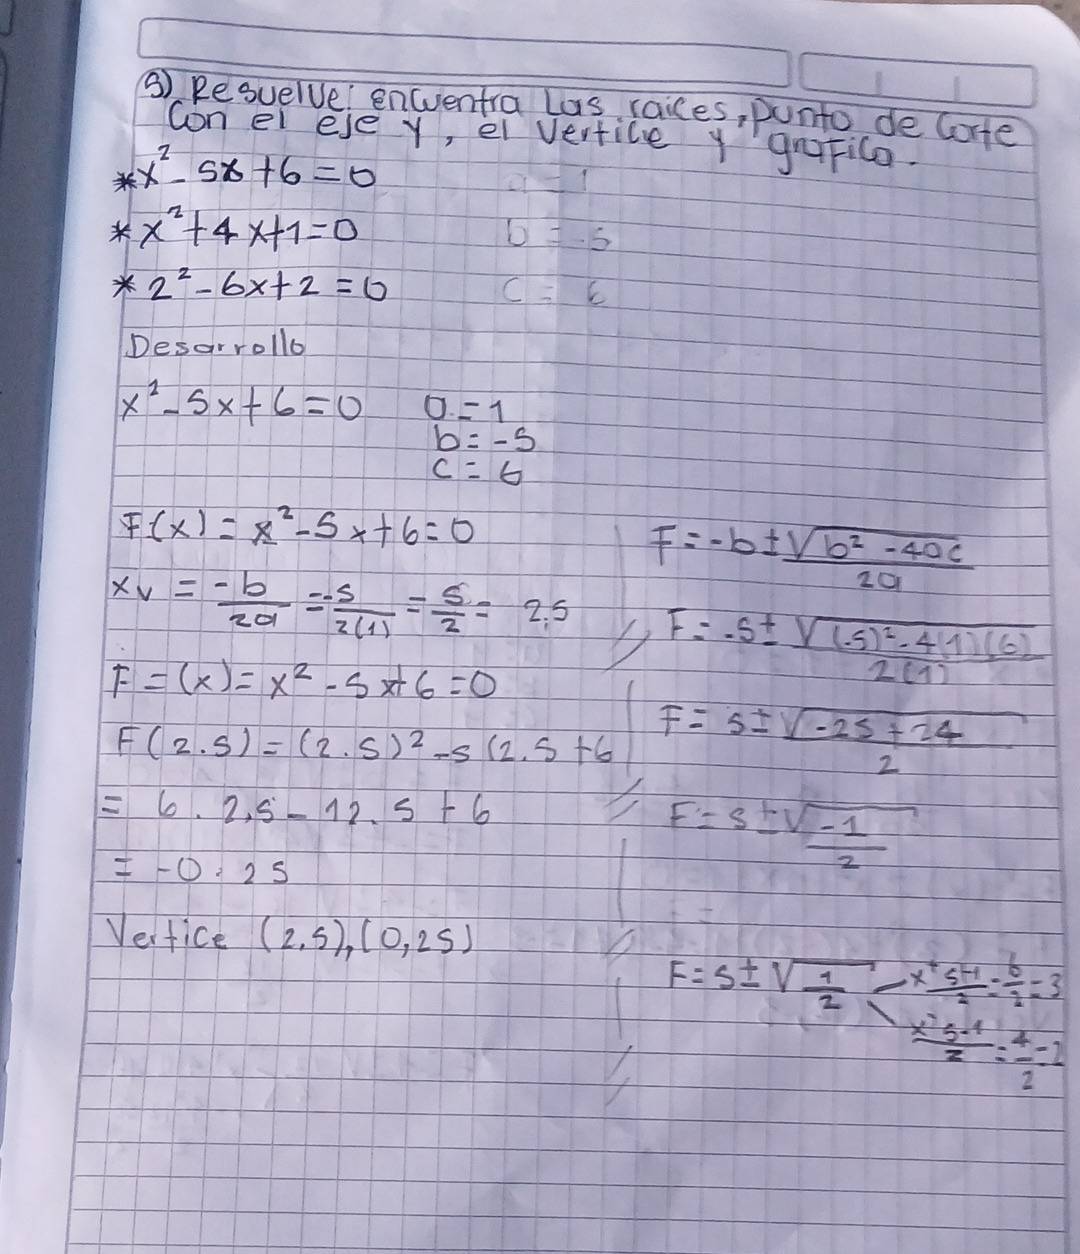 3) Resuelve; encuentra Las raices, punto de Corte
Con el eje y, el Vertice y grafico.
* x² - 5x + 6 = 0 a = 1
* x² + 4x + 1 = 0 b = -5
* 2² - 6x + 2 = 0 c = 6
Desarrollo
x² - 5x + 6 = 0 a = 1
b = -5
c = 6
F(x) = x² - 5x + 6 = 0
xv = -b/2a = -5/2(1) = 5/2 = 2.5
F = (x) = x² - 5x + 6 = 0
F(2.5) = (2.5)² - 5 (2.5 + 6
= 6.2,5 - 12.5 + 6
= -0.25
Vertice (2,5), (0,25)
F = -b ± √b² - 4ac / 2a
F = -5 ± √(-5)² - 4(1)(6) / 2(1)
F = 5 ± √-25 + 24 / 2
F = 5 ± √-1 / 2
F = 5 ± √1 / 2
x⁺ 5+1 / 2 = 6/2 = 3
x⁻ 5-1 / 2 = 4/2 = 2